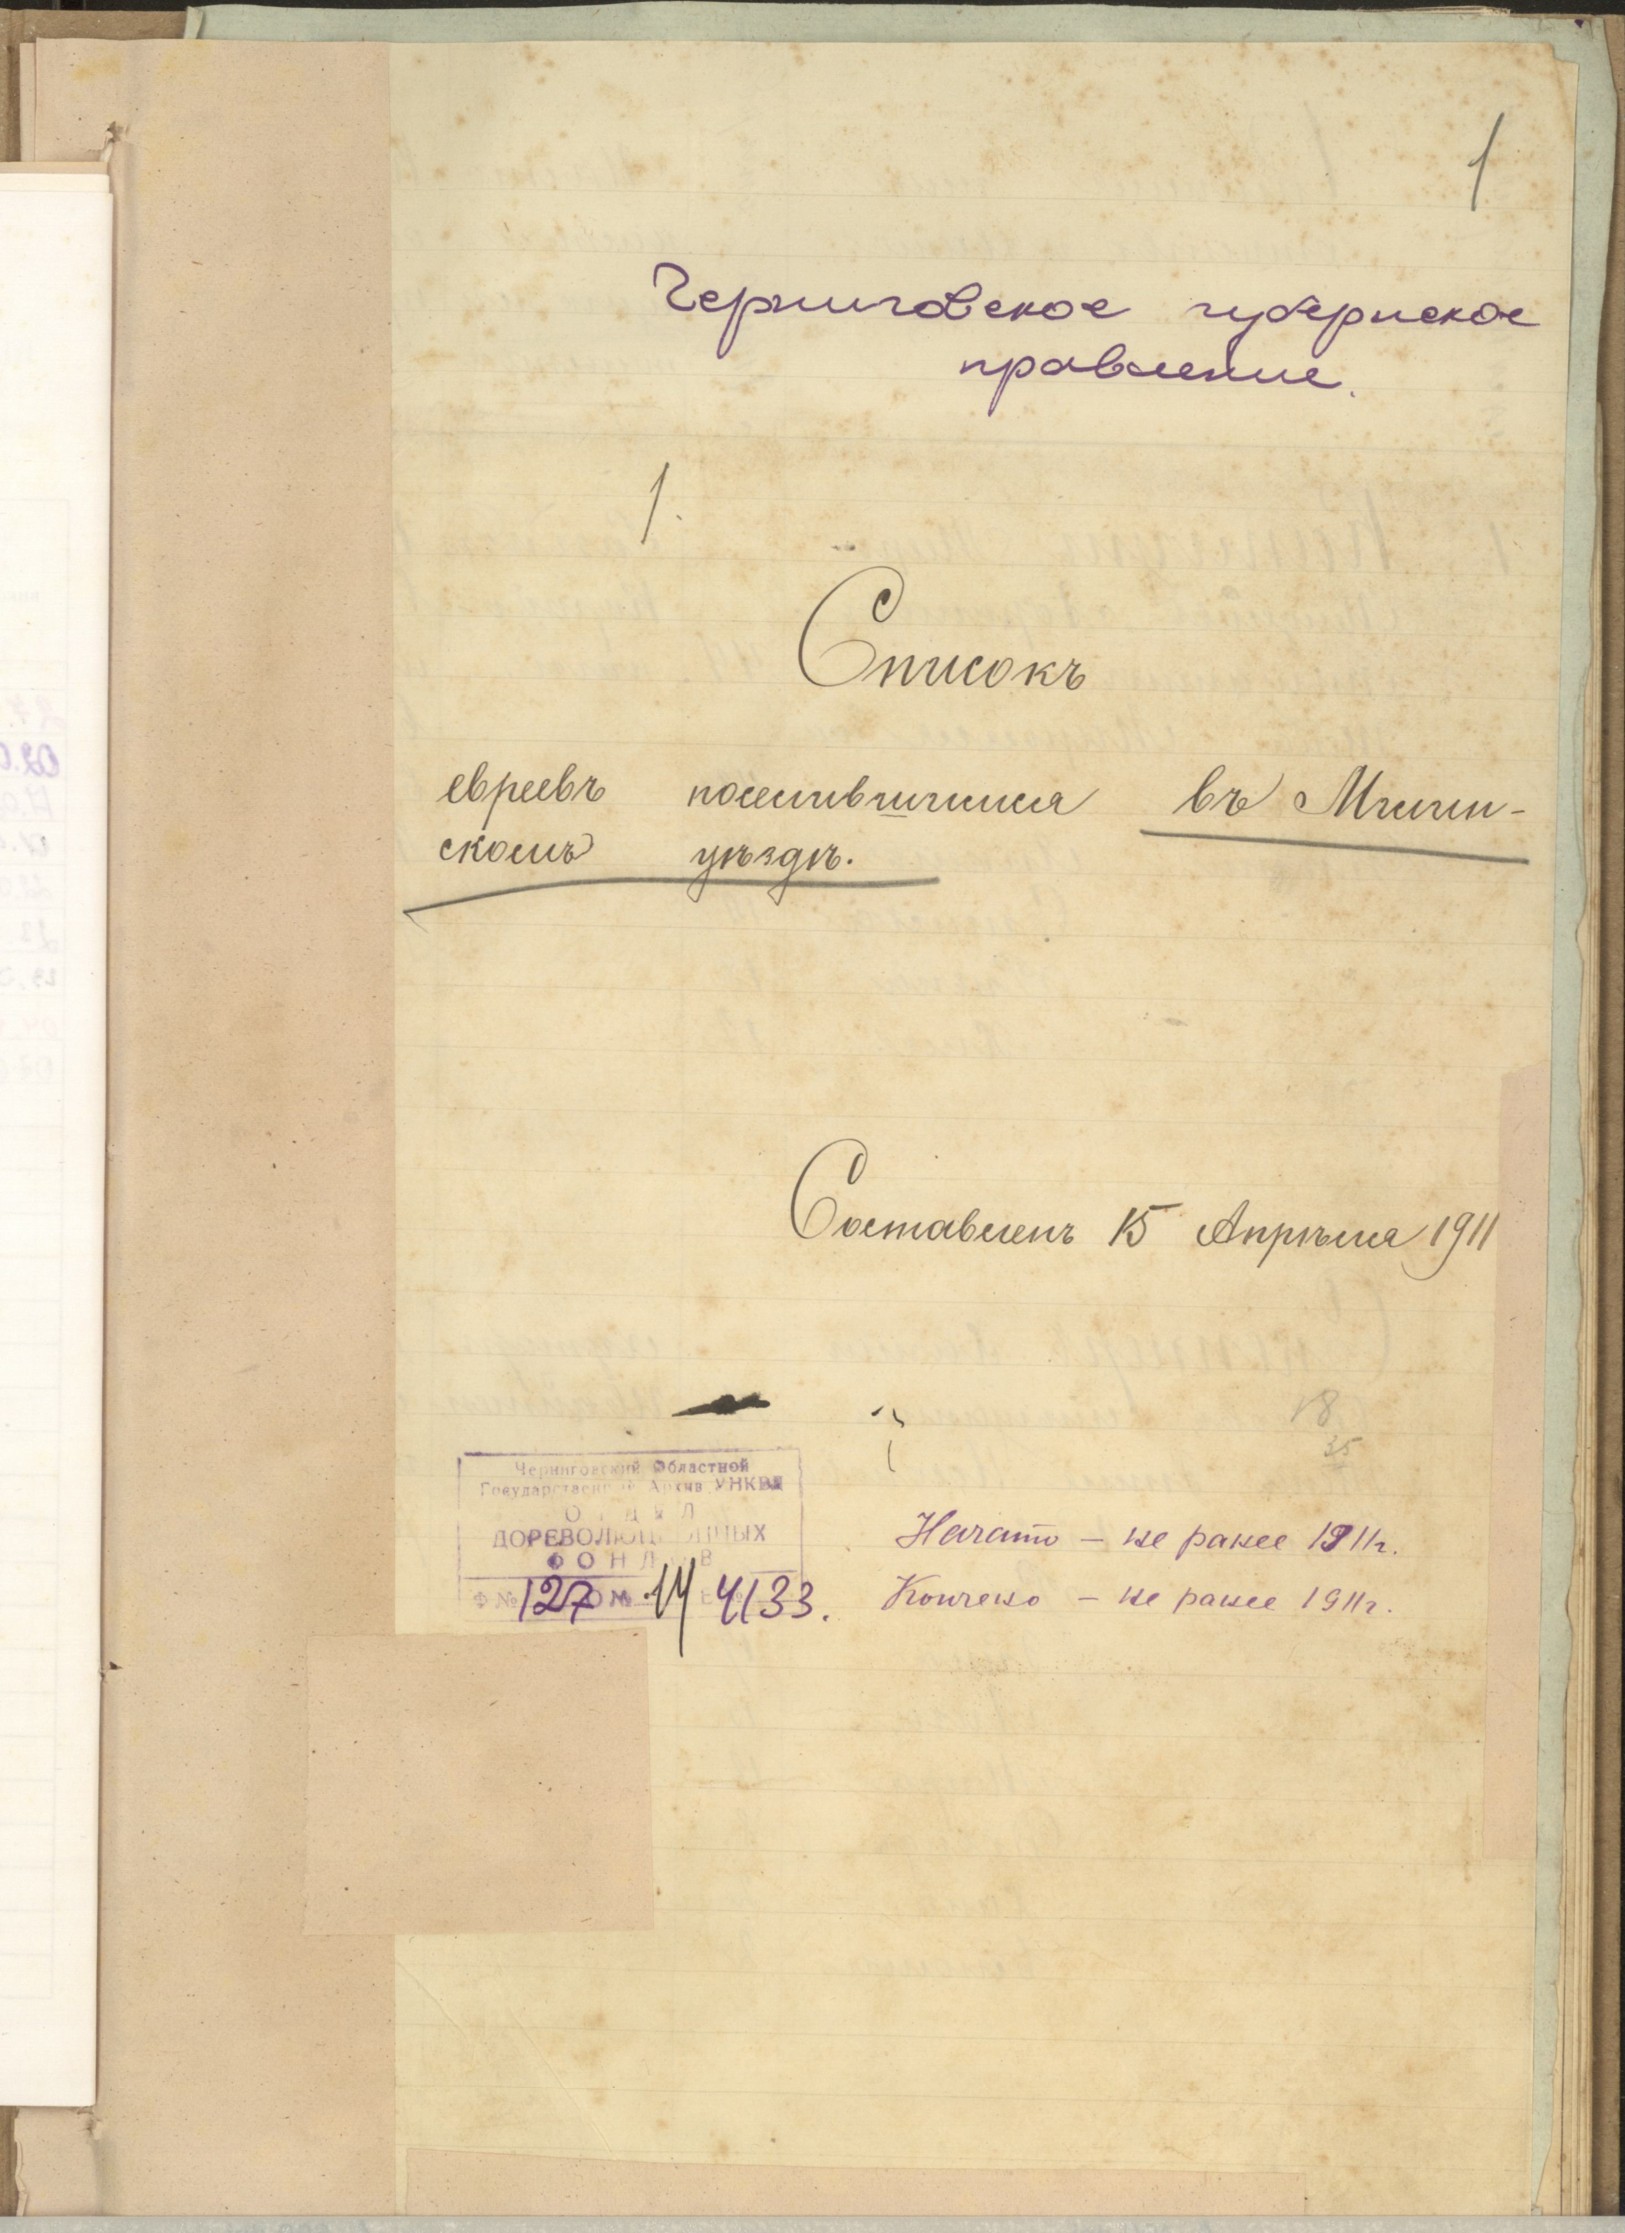 1
Черниговское губернское
правление.
1.
Списокъ
евреевъ поселившихся въ Мглин-
скомъ уѣздѣ.
Составленъ 15 Апрѣля 1911
18
35
Черниговский Областной
Государственный Архив УНКВД
ОТДЕЛ
ДОРЕВОЛЮЦИОННЫХ
ФОНДОВ
Ф № 127 ОП № 14 4133.
Начато – не ранее 1911г.
Кончено – не ранее 1911г.